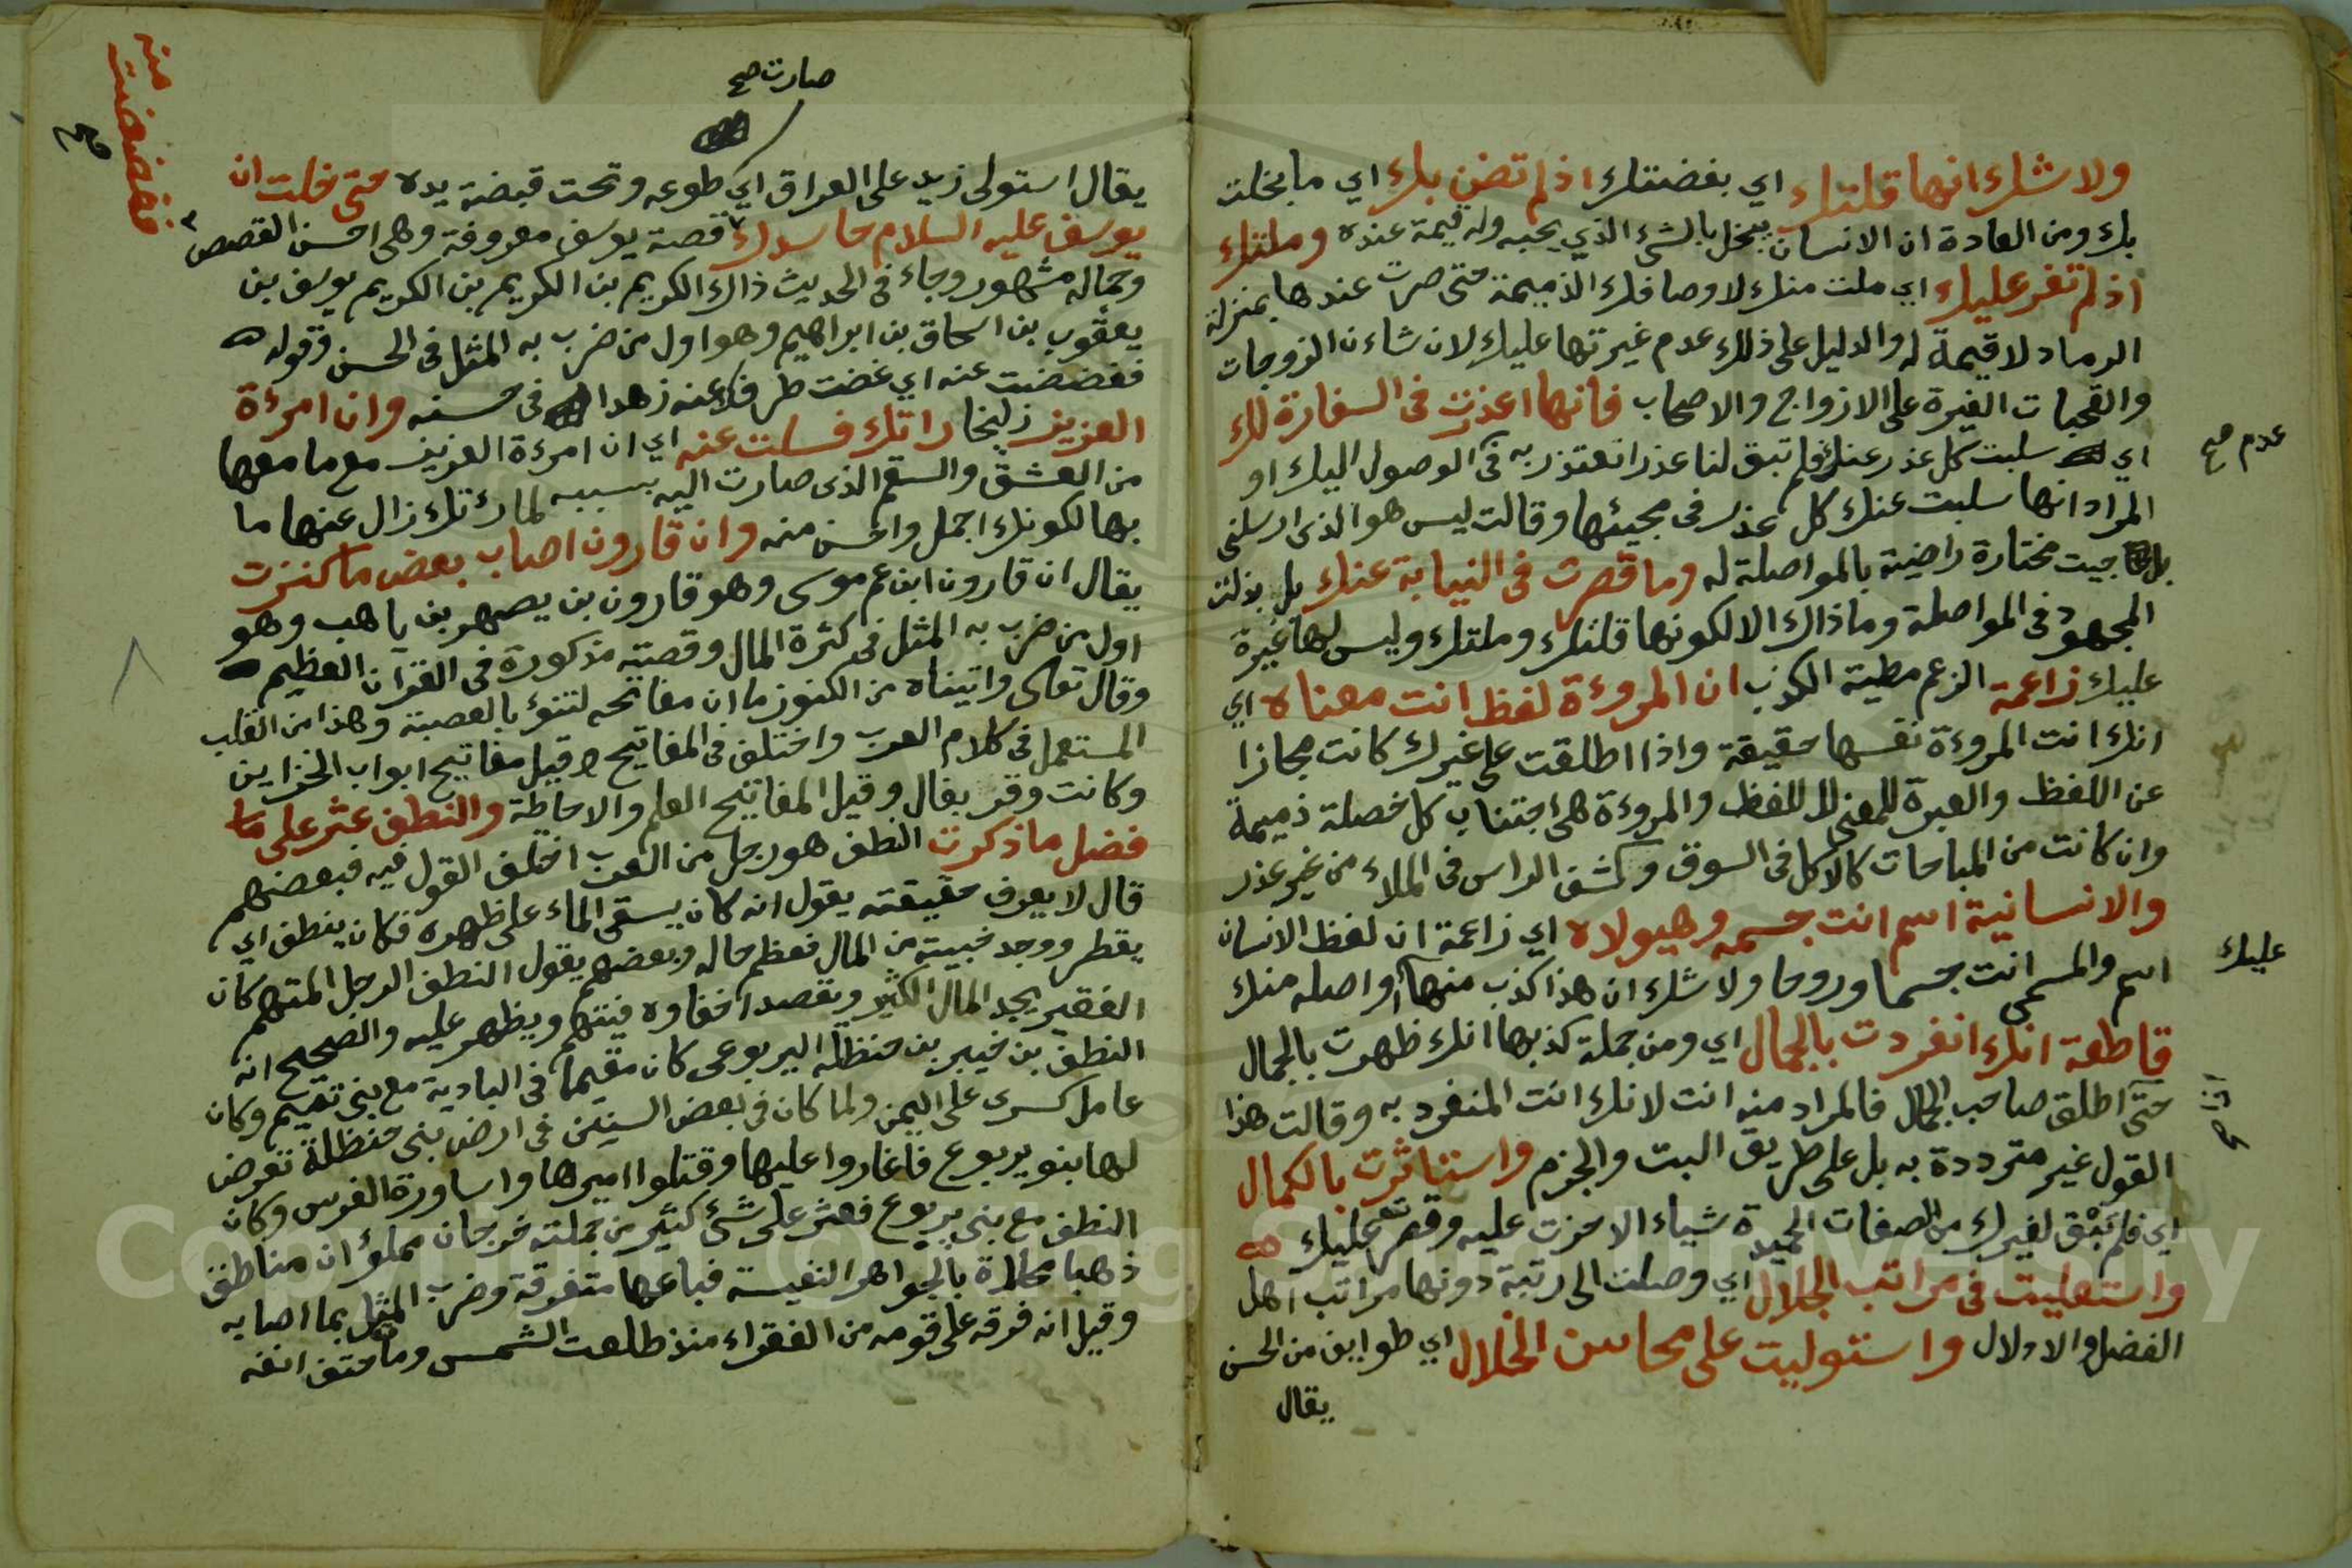 ولا شك انها قلتك اي بغضتك اذ لم تضن بك اي ما بخلت
بك ومن العادة ان الانسان يبخل بالشئ الذي يحبه وله قيمة عنده وملتك
اذ لم تغر عليك اي ملت منك لاوصافك الذميمة حتى صرت عندها بمنزلة
الرماد لا قيمة له والدليل على ذلك عدم غيرتها عليك لان شاءن الزوجات
والقحبات الغيرة على الازواج والاصحاب فانها اعذرت في السفارة لك
اي سلبت كل عذر عنك فلم تبق لنا عذرا نعتذر به في الوصول اليك او
عدم صح
المراد انها سلبت عنك كل عذر في مجيئها وقالت ليس هو الذي ارسلني
بل جيت مختارة راضية بالمواصلة له وما قصرت في النيابة عنك بل بذلت
المجهود في المواصلة وما ذاك الا لكونها قلتك وملتك وليس لها غيرة
عليك زاعمة الزعم مطية الكذب ان المروءة لفظ انت معناه اي
انك انت المروءة نفسها حقيقة واذا اطلقت على غيرك كانت مجازا
عن اللفظ والعبرة للمعنى لا للفظ والمروءة هي اجتناب كل خصلة ذميمة
وان كانت من المباحات كالاكل في السوق وكشف الراس في الملاء من غير عذر
والانسانية اسم انت جسمه وهيولاه اي زاعمة ان لفظ الانسان
اسم والمسمى انت جسما وروحا ولا شك ان هذا كذب منها او اصله منك
عليك
قاطعة انك انفردت بالجمال اي ومن جملة كذبها انك ظهرت بالجمال
حتى اطلق صاحب الجمال فالمراد منه انت لانك انت المنفرد به وقالت هذا
القول غير مترددة به بل على طريق البت والجزم واستاثرت بالكمال
اي فلم تبق لغيرك من الصفات الحميدة شياء الا حزت عليه وقصر عليك
واستعليت في مراتب الجلال اي وصلت الى رتبة دونها مراتب اهل
الفضل والادلال واستوليت على محاسن الخلال اي طوايف من الحسن
يقال
صارت صح
يقال استولى زيد على العراق اي طوعه وتحت قبضة يده حتى خلت ان
يوسف عليه السلام حاسدك قصة يوسف معروفة وهي احسن القصص
منه
فغضضت
صح
وجماله مشهور وجاء في الحديث ذاك الكريم بن الكريم بن الكريم يوسف بن
يعقوب بن اسحاق بن ابراهيم وهو اول من ضرب به المثل في الحسن وقوله
فغضضت عنه اي غضت طرفك عنه زهدا في حسنه وان امرءة
العزيز زليخا راتك فسلت عنه اي ان امرءة العزيز مع ما معها
من العشق والسقم الذي صارت اليه بسببه لما رءتك زال عنها ما
بها لكونك اجمل واحسن منه وان قارون اصاب بعض ما كنزت
يقال ان قارون ابن عم موسى وهو قارون بن يصهر بن ياهب وهو
اول من ضرب به المثل في كثرة المال وقصته مذكورة في القرآن العظيم
وقال تعالى واتيناه من الكنوز ما ان مفاتحه لتنوء بالعصبة وهذا من القلب
المستعمل في كلام العرب واختلف في المفاتيح وقيل مفاتيح ابواب الخزاين
وكانت وقر بغال وقيل المفاتيح العلم والاحاطة والنطف عثر على
فضل ما ذكرت النطف هو رجل من العرب اختلف القول فيه فبعضهم
قال لا يعرف حقيقته يقول انه كان يسقي الماء على ظهره فكان ينطف اي
يقطر ووجد خبيته من المال فعظم حاله وبعضهم يقول النطف الرجل المتهم كان
الفقير يجد المال الكثير ويقصد اخفاوه فيتهم ويظهر عليه والصحيح انه
النطف بن خيبر بن حنظلة اليربوعي كان مقيما في البادية مع بني تميم وكان
عامل كسرى على اليمن ولما كان في بعض السنين في ارض بني حنظلة تعرض
لها بنو يربوع فاغاروا عليها وقتلوا اميرها واساورة الفرس وكان
النطف مع بني يربوع فعثر على شئ كثير من جملته خرجان مملؤان مناطق
ذهبا بالجواهر النفيسة فباعها متفرقة وضرب المثل بما اصابه
وقيل انه فرقه على قومه من الفقراء منذ طلعت الشمس ومات حتف انفه
Copyright © King Saud University